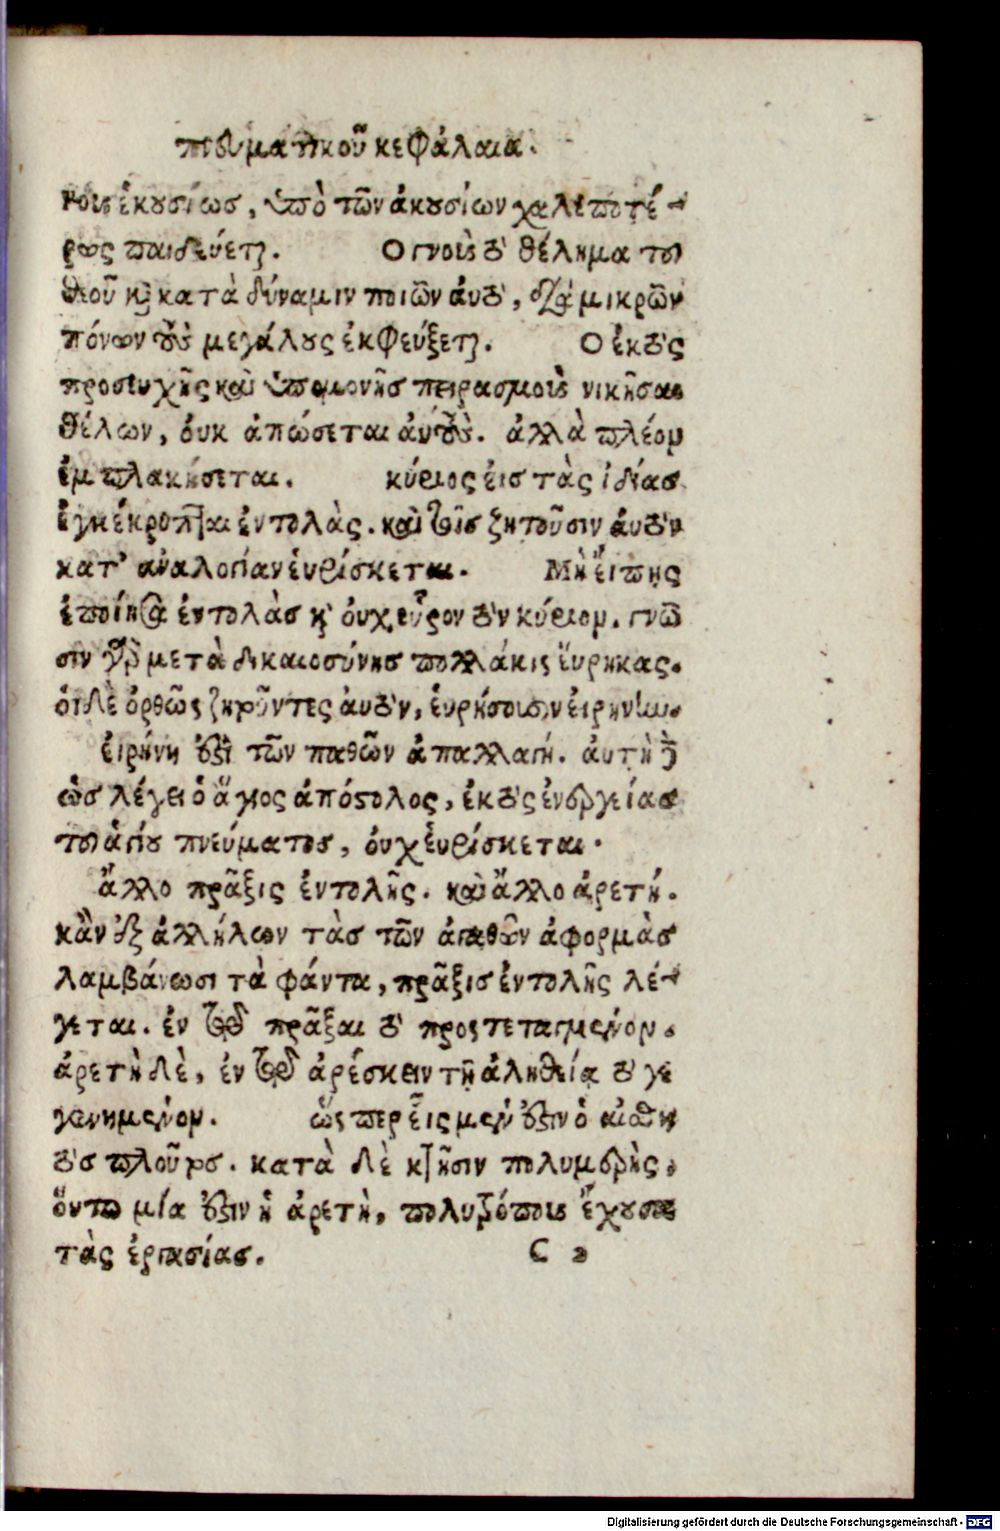 πνευματικοῦ κεφάλαια.
νοις ἑκουσίως, ὑπὸ τῶν ἀκουσίων χαλεποτέ-
ρως παιδεύεται. Ο γνοὺς τὸ θέλημα τοῦ
θεοῦ καὶ κατὰ δύναμιν ποιῶν ἀυτὸ, διὰ μικρῶν
πόνων τοὺς μεγάλους ἐκφεύξεται. Ο ἐκτὸς
προσευχῆς καὶ ὑπομονῆς πειρασμοὺς νικῆσαι
θέλων, ὀυκ ἀπώσεται ἀυτοὺς. ἀλλὰ πλέον
ἐμπλακήσεται. κύριος ἐις τὰς ἰδίας
ἐγκέκρυπται ἐντολὰς. καὶ τοῖς ζητοῦσιν ἀυτὸν
κατ' ἀναλογίαν ἑυρίσκεται. Μὴ ἔιπῃς
ἐποίησα ἐντολὰς καὶ ὀυχ εὗρον τὸν κύριον. γνῶ
σιν γὰρ μετὰ δικαιοσύνης πολλάκις ἕυρηκας.
ὁι δὲ ὀρθῶς ζητοῦντες ἀυτὸν, ἑυρήσουσιν ἐιρήνην.
ἐιρήνη ἐστὶ τῶν παθῶν ἀπαλλαγή. ἀυτὴ δὲ
ὡς λέγει ὁ ἅγιος ἀπόστολος, ἐκτὸς ἐνεργείας
τοῦ ἁγίου πνεύματος, ὀυχ ἑυρίσκεται.
ἄλλο πρᾶξις ἐντολῆς. καὶ ἄλλο ἀρετή.
κἂν ἐξ ἀλλήλων τὰς τῶν ἀγαθῶν ἀφορμὰς
λαμβάνωσι τὰ φάντα, πρᾶξις ἐντολῆς λέ-
γεται. ἐν τῷ πρᾶξαι τὸ προστεταγμένον.
ἀρετὴ δὲ, ἐν τῷ ἀρέσκειν τῇ ἀληθείᾳ τὸ γε
γενημένον. ὥς περ ἕις μὲν ἐστιν ὁ αἰσθη
τὸς πλοῦτος. κατὰ δὲ κτῆσιν πολυμερὴς,
ὅυτω μία ἐστιν ἡ ἀρετὴ, πολυτρόπους ἔχουσα
τὰς ἐργασίας. C 2
Digitalisierung gefördert durch die Deutsche Forschungsgemeinschaft - DFG